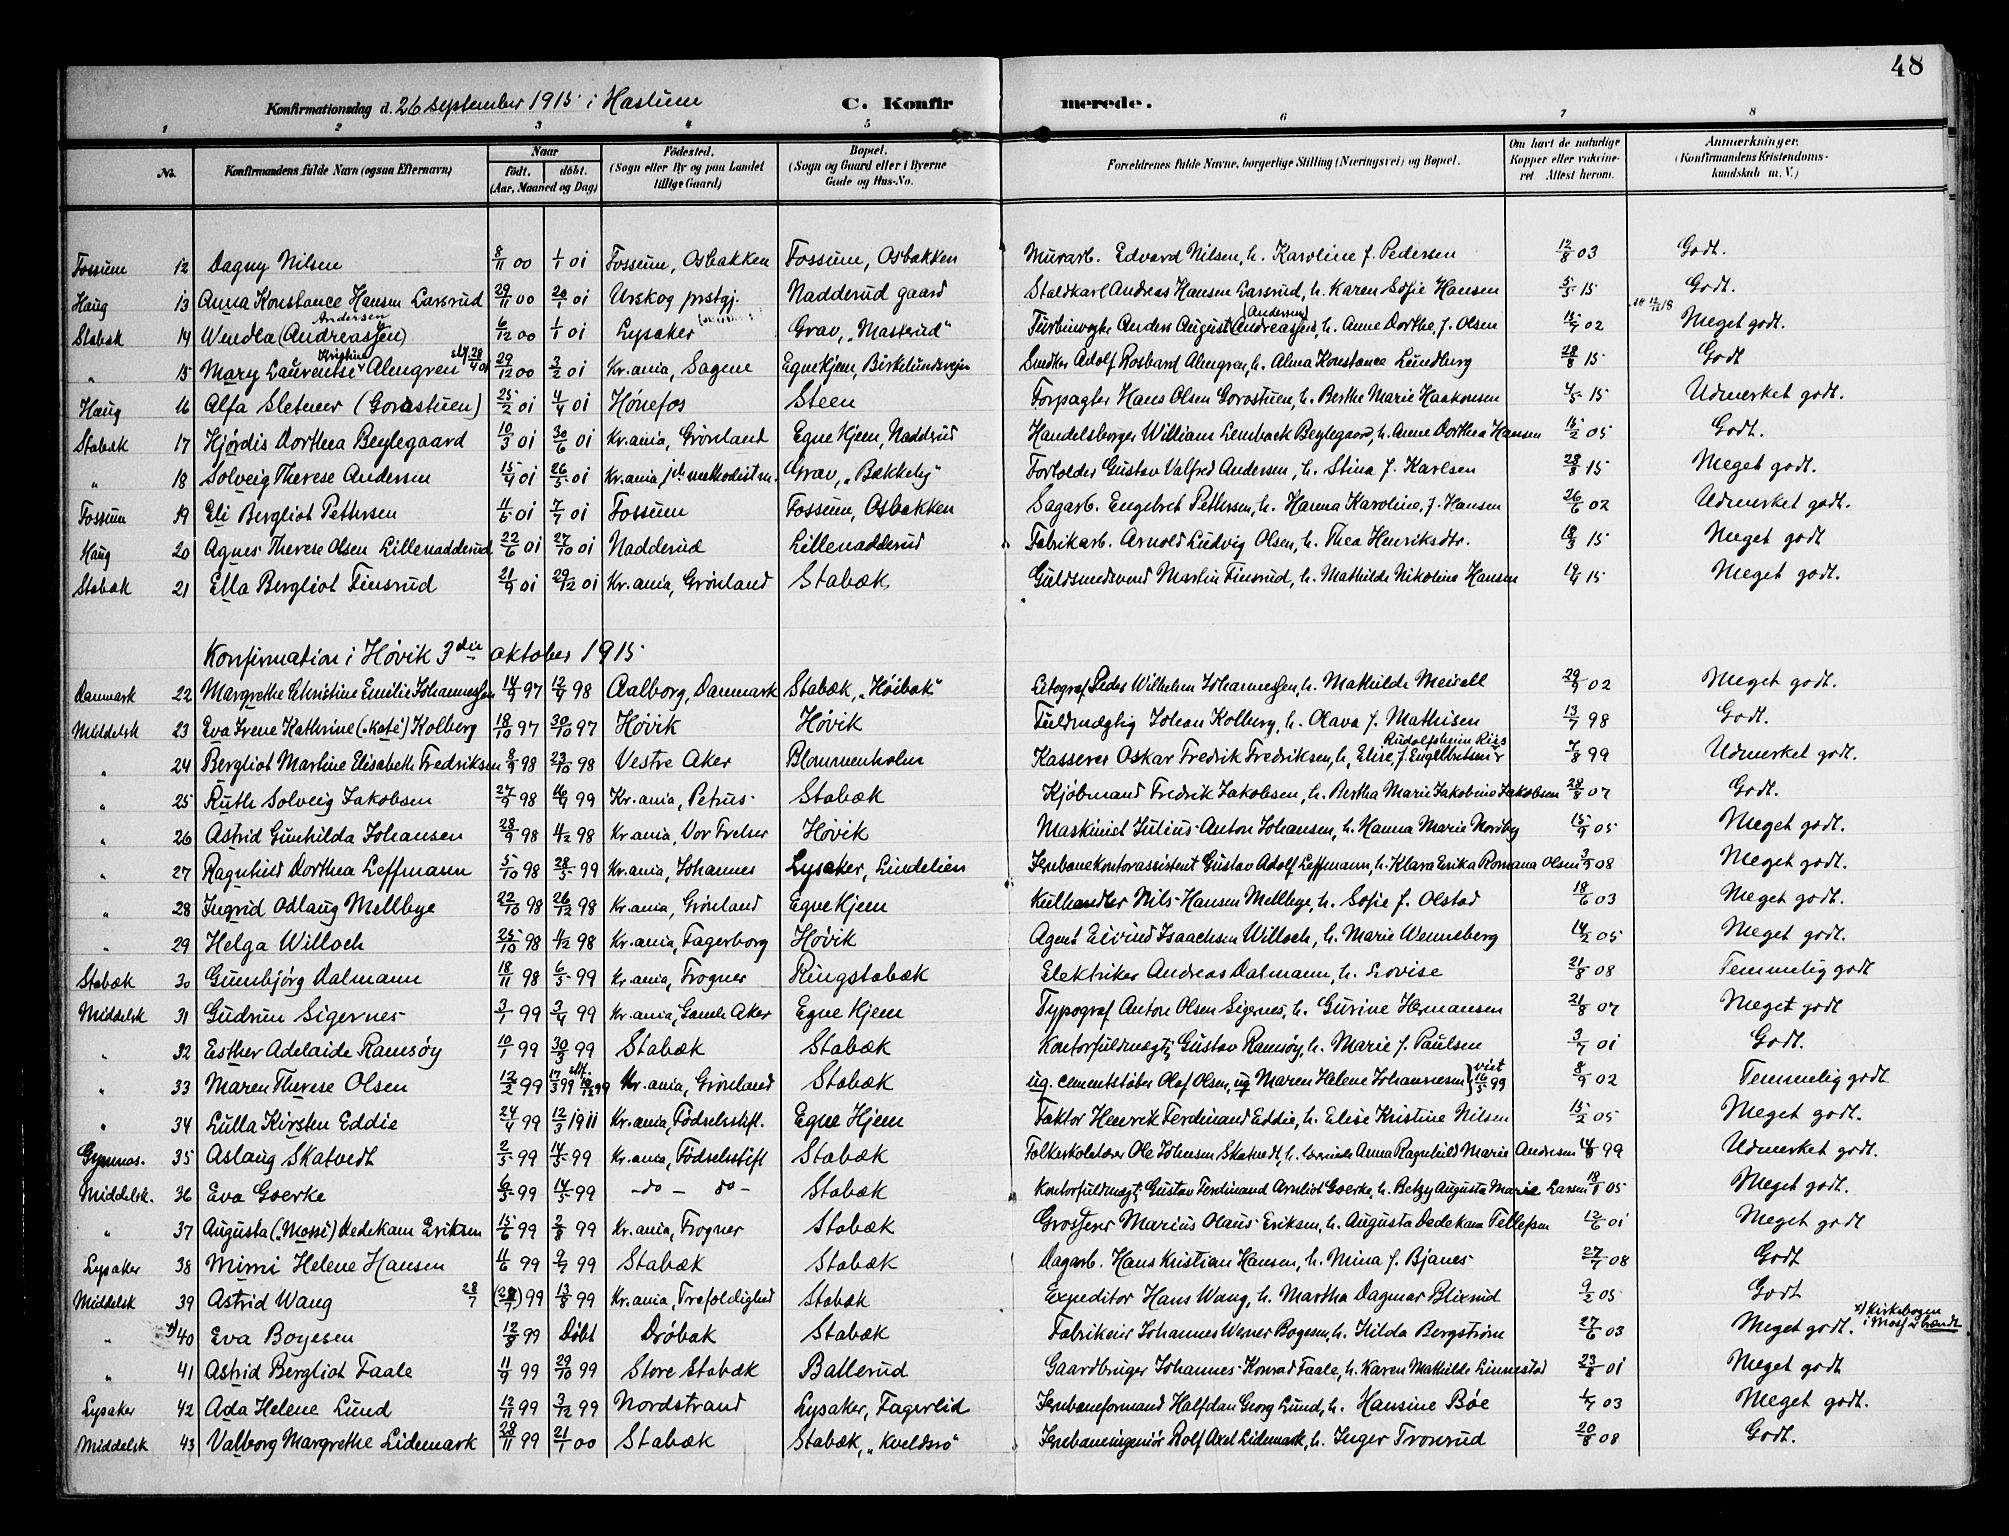 48
Konfirmationsdag d. 26 september 1915 i Haslum C. Konfirmerede.
1 2 3 4 5 6 7 8
No. Konfirmandens fulde Navn (ogsaa Efternavn) Naar født. døbt. (Aar, Maaned og Dag) Fødested. (Sogn eller By og paa Landet tillige Gaard) Bopæl. (Sogn og Gaard eller i Byerne Gade og Hus-No. Forældrenes fulde Navne, borgerlige Stilling (Næringsvei) og Bopæl. Om havt de naturlige Kopper eller vaccineret Attest herom. Anmærkninger. (Konfirmandens Kristendomskundskab m. V.)
Fossum 12 Dagny Nilsen 8/11 00 1/1 01 Fossum, Osbakken Fossum, Osbakken Murarb. Edvard Nilsen, h. Karoline f. Pedersen 12/8 03 Godt.
Haug 13 Anna Konstance Hansen Larsrud 29/11 00 20/1 01 Urskog prstgj. Nadderud gaard Staldkarl Andreas Hansen Larsrud, h. Karen Sofie Hansen 5/5 15 Godt.
Stabæk 14 Wendla (Andreassen) Andersen 6/12 00 1/1 01 Lysaker Grav, "Masterud" Turbinvogter Anders August Andreassen (Andersen), h. Anne Dorthe, f. Olsen 15/7 02 Meget godt.
" 15 Mary Laurentse Kristine Almgren 29/12 00 3/2 01 Kr.ania, Sagene Egne Hjem, Birkelundsveien Snedker Adolf Rosbard Almgren, h. Alma Konstance Lundberg 28/8 15 Godt
Haug 16 Alfa Sletner (Gorostuen) 25/2 01 4/4 01 Hønefos Steen Forpagter Hans Olsen Gorostuen, h. Berthe Marie Haakonsen 4/5 15 Udmerket godt.
Stabæk 17 Hjördis Dorthea Beylegaard 10/3 01 30/6 01 Kr.ania, Grønland Egne Hjem, Nadderud Handelsborger William Lembach Beylegaard, h. Anne Dorthea Hansen 15/2 05 Godt.
" 18 Solveig Therese Andersen 15/4 01 26/5 01 Kr.ania, methodistm. Grav, "Bækkely" Forvolder Gustav Valfred Andersen, h. Stina f. Karlsen 28/8 15 Meget godt.
Fossum 19 Eli Bergliot Pettersen 11/5 01 7/7 01 Fossum Fossum, Osbakken Sagarb. Engebret Pettersen, h. Hanna Karoline, f. Hansen 26/6 02 Udmerket godt.
Haug 20 Agnes Therese Olsen Lillenadderud 22/6 01 27/10 01 Nadderud Lillenadderud Fabrikarb. Arnold Ludvig Olsen, h. Thea Henriksdtr. 18/3 15 Meget godt
Stabæk 21 Ella Bergliot Finsrud 21/9 01 29/12 01 Kr.ania, Grønland Stabæk Guldsmedsvend Martin Finsrud, h. Mathilde Nikoline Hansen 19/4 15 Meget godt.
Konfirmation i Høvik 3die oktober 1915
Danmark 22 Margrethe Christine Emilie Johannessen 14/9 97 12/4 98 Aalborg, Danmark Stabæk, "Høibak" Litograf Peder Wilhelm Johannessen, h. Mathilde Meisell 29/9 02 Meget godt.
Middelsk 23 Eva Irene Kathrine ("Kate") Kolberg 18/10 97 30/10 97 Høvik Høvik Fuldmægtig Johan Kolberg, h. Olava f. Mathisen 13/7 98 Godt.
" 24 Bergliot Martine Elisabeth Fredriksen 8/9 98 23/10 98 Vestre Aker Blommenholm Kasserer Oskar Fredrik Fredriksen, h. Elise, f. Engebretsen 7/8 99 Udmerket godt.
" 25 Ruth Solveig Jakobsen 27/9 98 16/4 99 Kr.ania, Petrus Stabæk Kjøbmand Fredrik Jakobsen, h. Bertha Marie Jakobine Jakobsen 28/8 07 Godt.
" 26 Astrid Gunhilda Johansen 28/9 98 4/12 98 Kr.ania, Vor Frelser Høvik Maskinist Julius Anton Johansen, h. Hanna Marie Nordby 15/9 05 Meget godt.
" 27 Ragnhild Dorthea Leffmann 5/10 98 28/5 99 Kr.ania, Johannes Lysaker, Lindelien Jernbanekontorassistent Gustav Adolf Leffmann, h. Klara Erika Romana Olsen 3/9 08 Meget godt.
" 28 Ingrid Odlaug Mellbye 22/10 98 26/12 98 Kr.ania, Grønland Egne Hjem Kulhandler Nils Hansen Mellbye, h. Sofie f. Olstad 18/6 03 Meget godt.
" 29 Helga Willoch 25/10 98 11/12 98 Kr.ania, Fagerborg Høvik Agent Eivind Isaachsen Willoch, h. Marie Wenneberg 14/2 05 Meget godt.
Stabæk 30 Gunnbjørg Dalmann 18/11 98 6/5 99 Kr.ania, Frogner Ringstabæk Elektriker Andreas Dalmann, h. Lovise 21/8 08 Temmelig godt
Middelsk 31 Gudrun Sigernes 3/1 99 3/4 99 Kr.ania, Gamle Aker Egne Hjem Typograf Anton Olsen Sigernes, h. Gurine Hermansen 21/8 07 Meget godt
" 32 Esther Adelaide Ramsøy 10/1 99 30/3 99 Stabæk Stabæk Kontorfuldmægt. Gustav Ramsøy, h. Marie f. Paulsen 3/7 01 Godt.
" 33 Maren Therese Olsen 12/2 99 17/3 99 Kr.ania, Grønland Stabæk ug. cementstøber Olaf Olsen, ug Maren Helene Johannesen } viet 16/5 99 8/9 02 Temmelig godt
" 34 Lulla Kirsten Eddie 24/4 99 12/3 1911 Kr.ania, Fødselsstift. Egne Hjem Faktor Henrik Ferdinand Eddie, h. Elise Kristine Nilsen 15/2 05 Meget godt.
Gymnas. 35 Aslaug Skatvedt 2/5 99 14/5 99 Kr.ania, Fødselsstift Stabæk Folkeskolelærer Ole Johnsen Skatvedt, h. Anna Ragnhild Marie Andresen 14/8 99 Udmerket godt.
Middelsk. 36 Eva Goerke 6/5 99 14/5 99 -do- do- Stabæk Kontorfuldmægt. Gustav Ferdinand Arnliot Goerke, h. Betzy Augusta Marie Larsen 18/1 05 Meget godt.
" 37 Augusta ("Mossi") Dedekam Eriksen 15/6 99 2/8 99 Kr.ania, Frogner Stabæk Grosserer Marius Olaus Eriksen, h. Augusta Dedekam Tellefsen 12/6 01 Meget godt
Lysaker 38 Mimi Helene Hansen 11/6 99 9/7 99 Stabæk Stabæk Dagarb. Hans Kristian Hansen, h. Mina f. Bjanes 27/7 08 Godt
Middelsk 39 Astrid Wang 28/7 (28/7) 99 13/8 99 Kr.ania, Trefoldighed Stabæk Expeditør Hans Wang, h. Martha Dagmar Blixrud 9/2 05 Godt
" x) 40 Eva Boyesen 12/8 99 Døbt Drøbak Stabæk Fabrikeier Johannes Werner Boyesen, h. Hilda Bergstrøm 27/6 03 Meget godt. x) Kirkebogen i Moss er brændt
" 41 Astrid Bergliot Faale 11/9 99 29/10 99 Store Stabæk Ballerud Gaardbruger Johannes Konrad Faale, h. Karen Mathilde Linnestad 23/8 01 Meget godt
Lysaker 42 Ada Helene Lund 12/11 99 3/12 99 Nordstrand Lysaker, Fagerlid Jernbaneformand Halfdan Georg Lund, h. Hansine Bøe 1/7 03 Meget godt.
Middelsk 43 Valborg Margrethe Lidemark 29/11 99 21/1 00 Stabæk Stabæk, "Kveldsro" Jernbaneingeniør Rolf Axel Lidemark, h. Inger Tronrud 20/8 08 Godt.